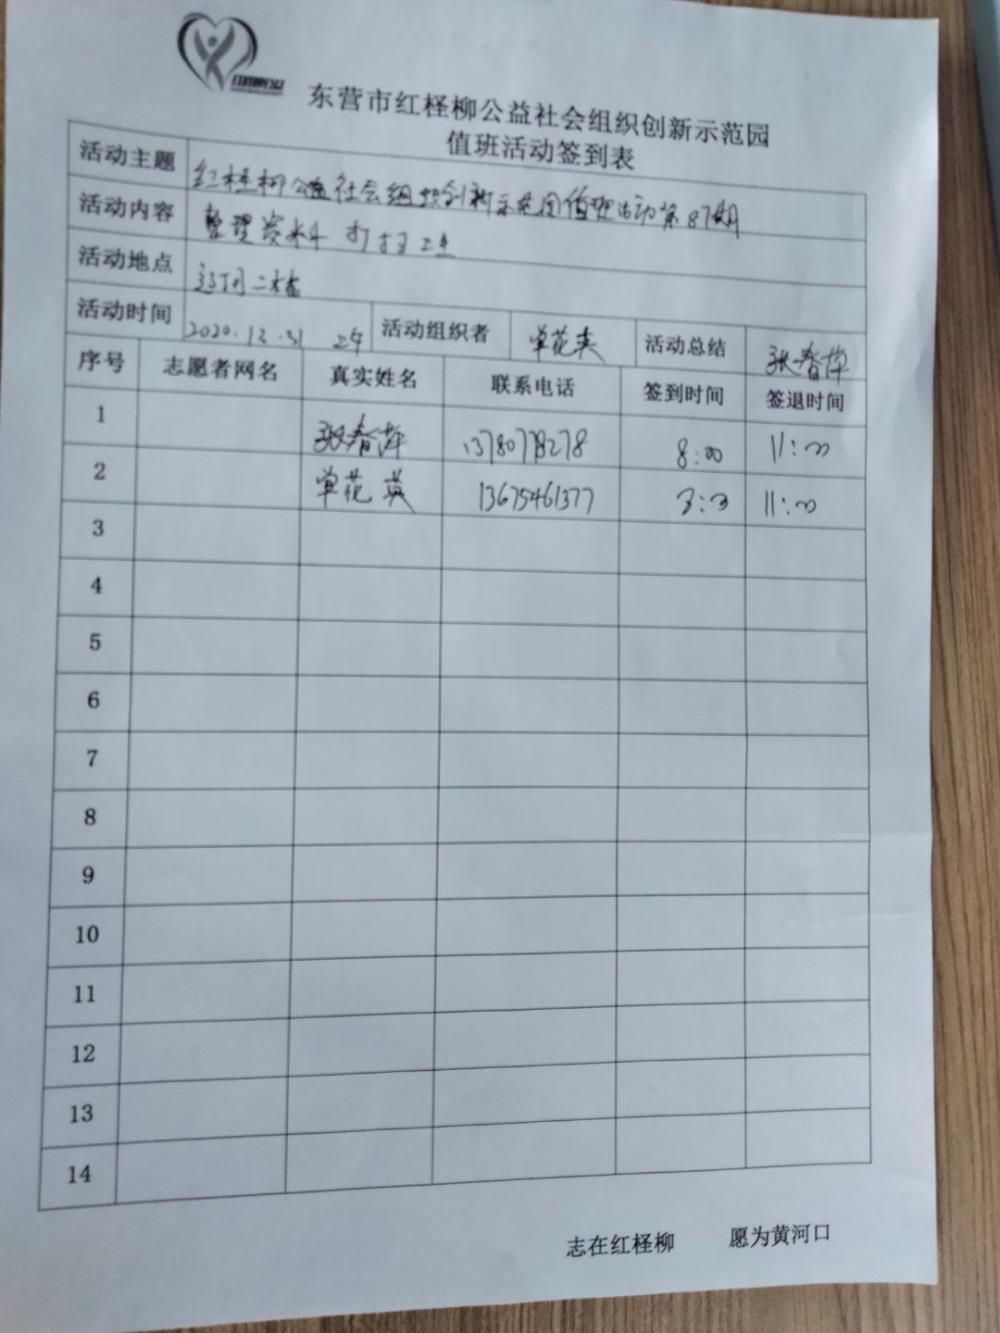 东营市红柽柳公益社会组织创新示范园
值班活动签到表
活动主题 红柽柳公益社会组织创新示范园值班活动第87期
活动内容 整理资料 打扫卫生
活动地点 辽河二楼
活动时间 2020.12.31 上午 活动组织者 单花英 活动总结 张春萍
序号 志愿者网名 真实姓名 联系电话 签到时间 签退时间
1 张春萍 8:00 11:00
2 单花英 13675461377 11:00
3
4
5
6
7
8
9
10
11
12
13
14
志在红柽柳 愿为黄河口